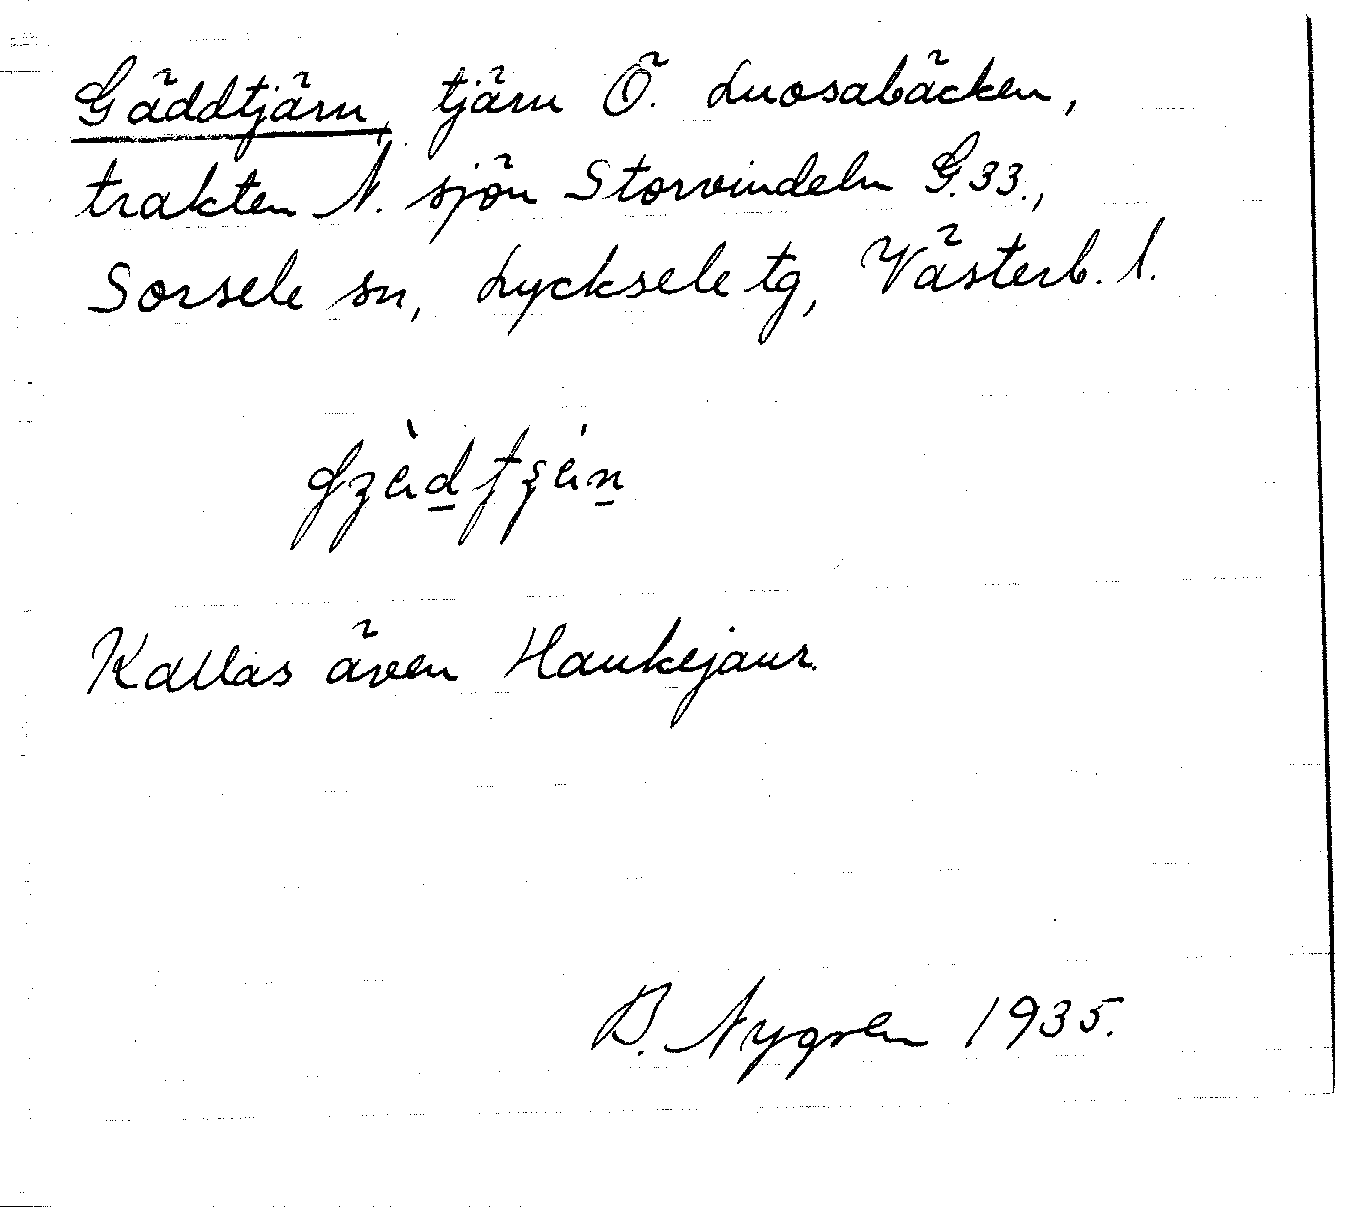 Gäddtjärn, tjärn Ö. Luosabäcken,
trakten N. sjön Storvindeln G.33.,
Sorsele sn, Lycksele tg, Västerb. l.
Kallas även Haukejaur.
B. Nygren 1935.